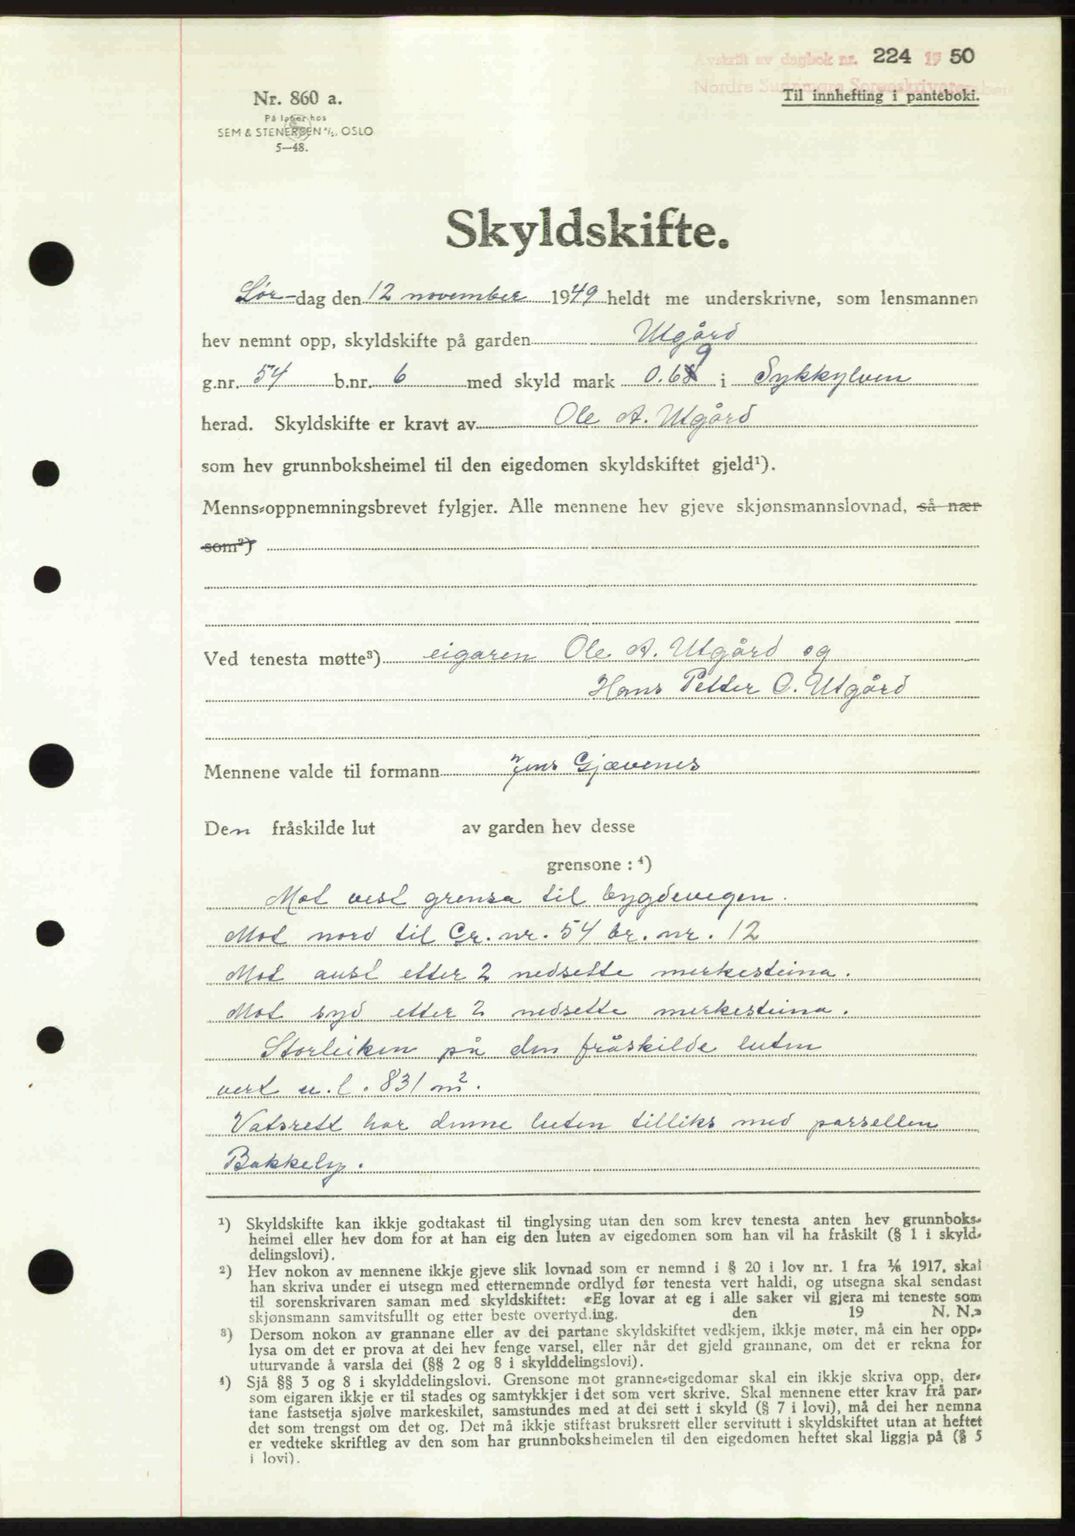 Avskrift av dagbok nr. 224 19 50
Nordre Sunnmøre Sorenskriverembete
Nr. 860 a.
Til innhefting i panteboki.
På lager hos
SEM & STENERSEN A/S, OSLO
5—48.
Skyldskifte.
Lør-dag den 12 november 1949 heldt me underskrivne, som lensmannen
hev nemnt opp, skyldskifte på garden Utgård
9
g.nr. 54 b.nr. 6 med skyld mark 0.68 i Sykkylven
herad. Skyldskifte er kravt av Ole A. Utgård
som hev grunnboksheimel til den eigedomen skyldskiftet gjeld¹).
Menns-oppnemningsbrevet fylgjer. Alle mennene hev gjeve skjønsmannslovnad, så nær
som²)
Ved tenesta møtte³) eigaren Ole A. Utgård og
Hans Petter O. Utgård
Mennene valde til formann Jens Gjævenes
Den fråskilde lut av garden hev desse
grensone : ⁴)
Mot vest grensa til bygdevegen.
Mot nord til Gr. nr. 54 br. nr. 12
Mot aust etter 2 nedsette merkesteina.
Mot syd etter 2 nedsette merkesteina.
Storleiken på den fråskilde luten
vert u. l. 831 m².
Vatsrett har denne luten tilliks med parsellen
Bakkely.
¹) Skyldskifte kan ikkje godtakast til tinglysing utan den som krev tenesta anten hev grunnboks-
heimel eller hev dom for at han eig den luten av eigedomen som han vil ha fråskilt (§ 1 i skyld-
delingslovi).
²) Hev nokon av mennene ikkje gjeve slik lovnad som er nemnd i § 20 i lov nr. 1 fra 1/6 1917, skal
han skriva under ei utsegn med etternemnde ordlyd før tenesta vert haldi, og utsegna skal sendast
til sorenskrivaren saman med skyldskiftet: «Eg lovar at eg i alle saker vil gjera mi teneste som
skjønsmann samvitsfullt og etter beste overtyd.ing. den 19 N. N.»
³) Dersom nokon av grannane eller av dei partane skyldskiftet vedkjem, ikkje møter, må ein her opp-
lysa om det er prova at dei hev fenge varsel, eller når det gjeld grannane, om det er rekna for
uturvande å varsla dei (§§ 2 og 8 i skylddelingslovi).
⁴) Sjå §§ 3 og 8 i skylddelingslovi. Grensone mot granne-eigedomar skal ein ikkje skriva opp, der-
som eigaren ikkje er til stades og samtykkjer i det som vert skrive. Skal mennene etter krav frå par-
tane fastsetja sjølve markeskilet, samstundes med at dei sett i skyld (§ 7 i lovi), må dei her nemna
det som trengst om det og. Det må ikkje stiftast bruksrett eller servitutt i skyldskiftet utan at heftet
er vedteke skriftleg av den som har grunnboksheimelen til den eigedomen heftet skal liggja på (§ 5
i lovi).